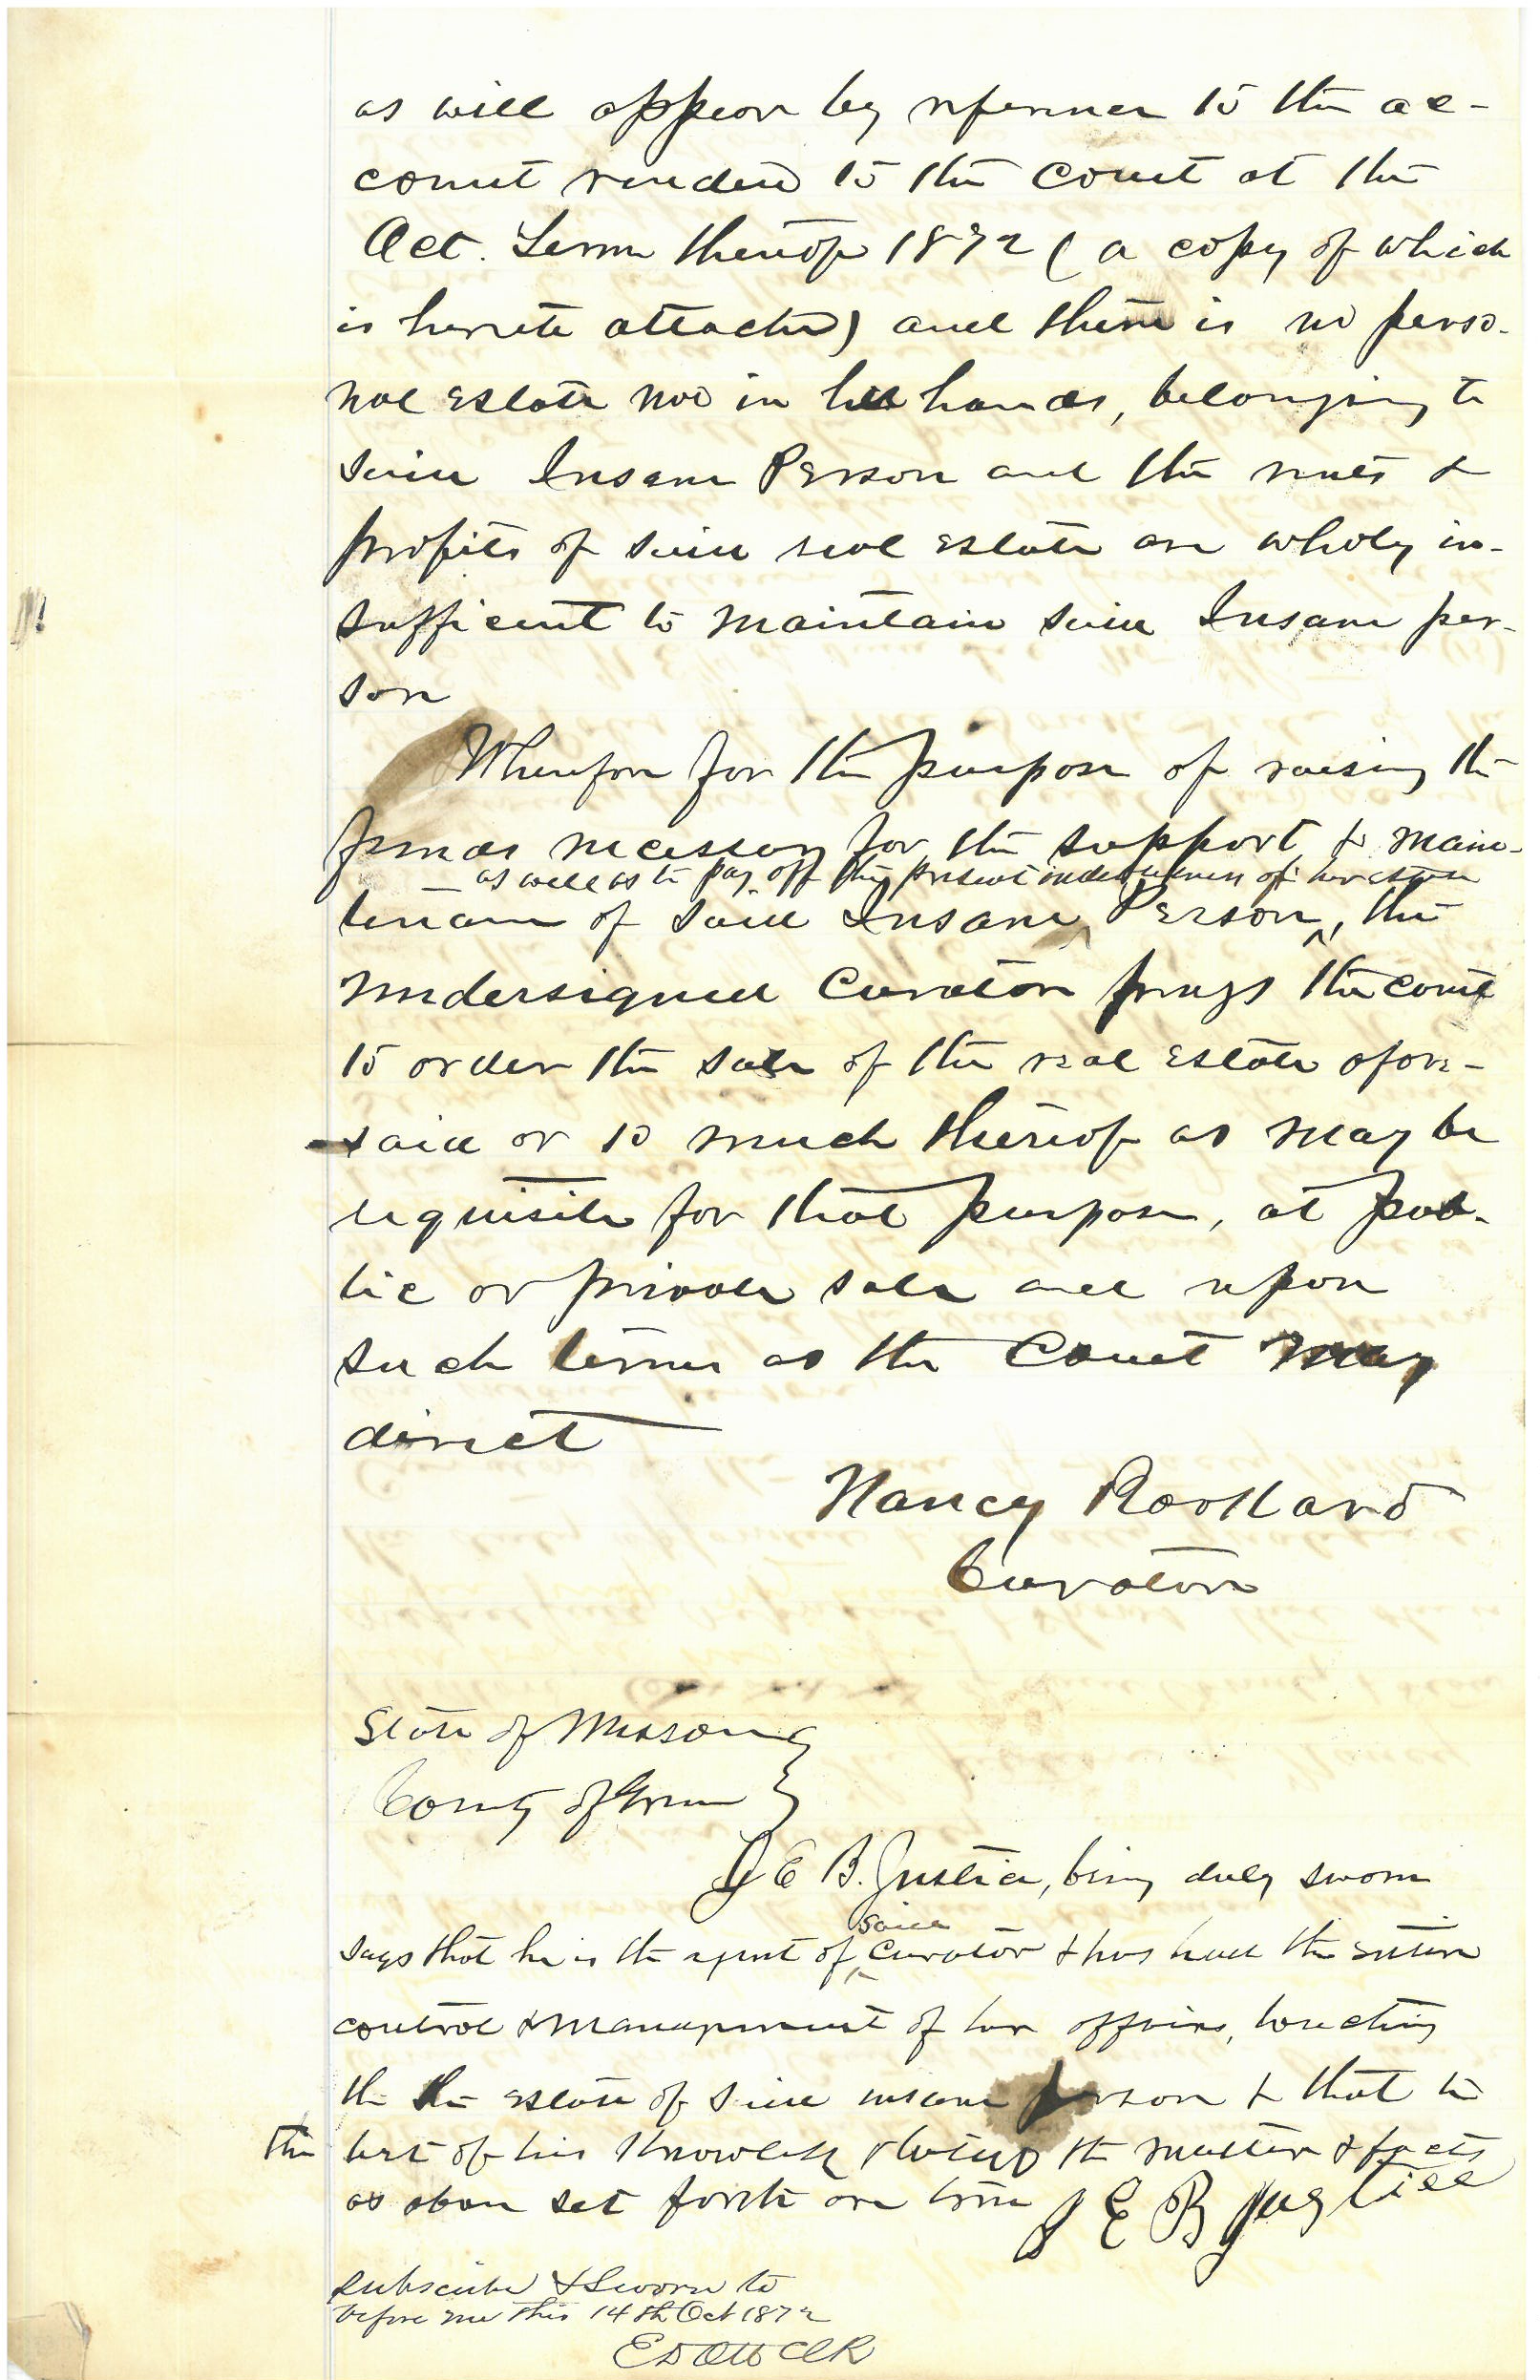 as will appear by reference to the ac-
count rendered to the Court at the
Oct. Term thereof 1872 ( a copy of which
is hereto attached) and there is no perso-
nal estate now in her hands, belonging to
said Insane Person and the rents &
profits of said real estate are wholy in-
sufficent to maintain said Insane per-
son
Wherefore for the purpose of raising the
funds necessary for the support & main-
— as well as to pay off the present indebtedness of her estate
tenance of said Insane Person ^, the
undersigned Curator prays the court
to order the sale of the real estate afore-
said or so much thereof as may be
requisite for that purpose, at pub-
lic or private sale and upon
such terms as the Court may
direct
Nancy
Curator
State of Missouri }
County of Green }
J E B. Justice, being duly sworn
said
says that he is the agent of ^ Curator & has had the entire
control & management of her affairs, touching
the the estate of said insane person & that to
the best of his knowledge & belief the matter & facts
as above set forth are true J E B Justice
Subscribed & Sworn to
before me this 14th Oct 1872
E D Ott Clk